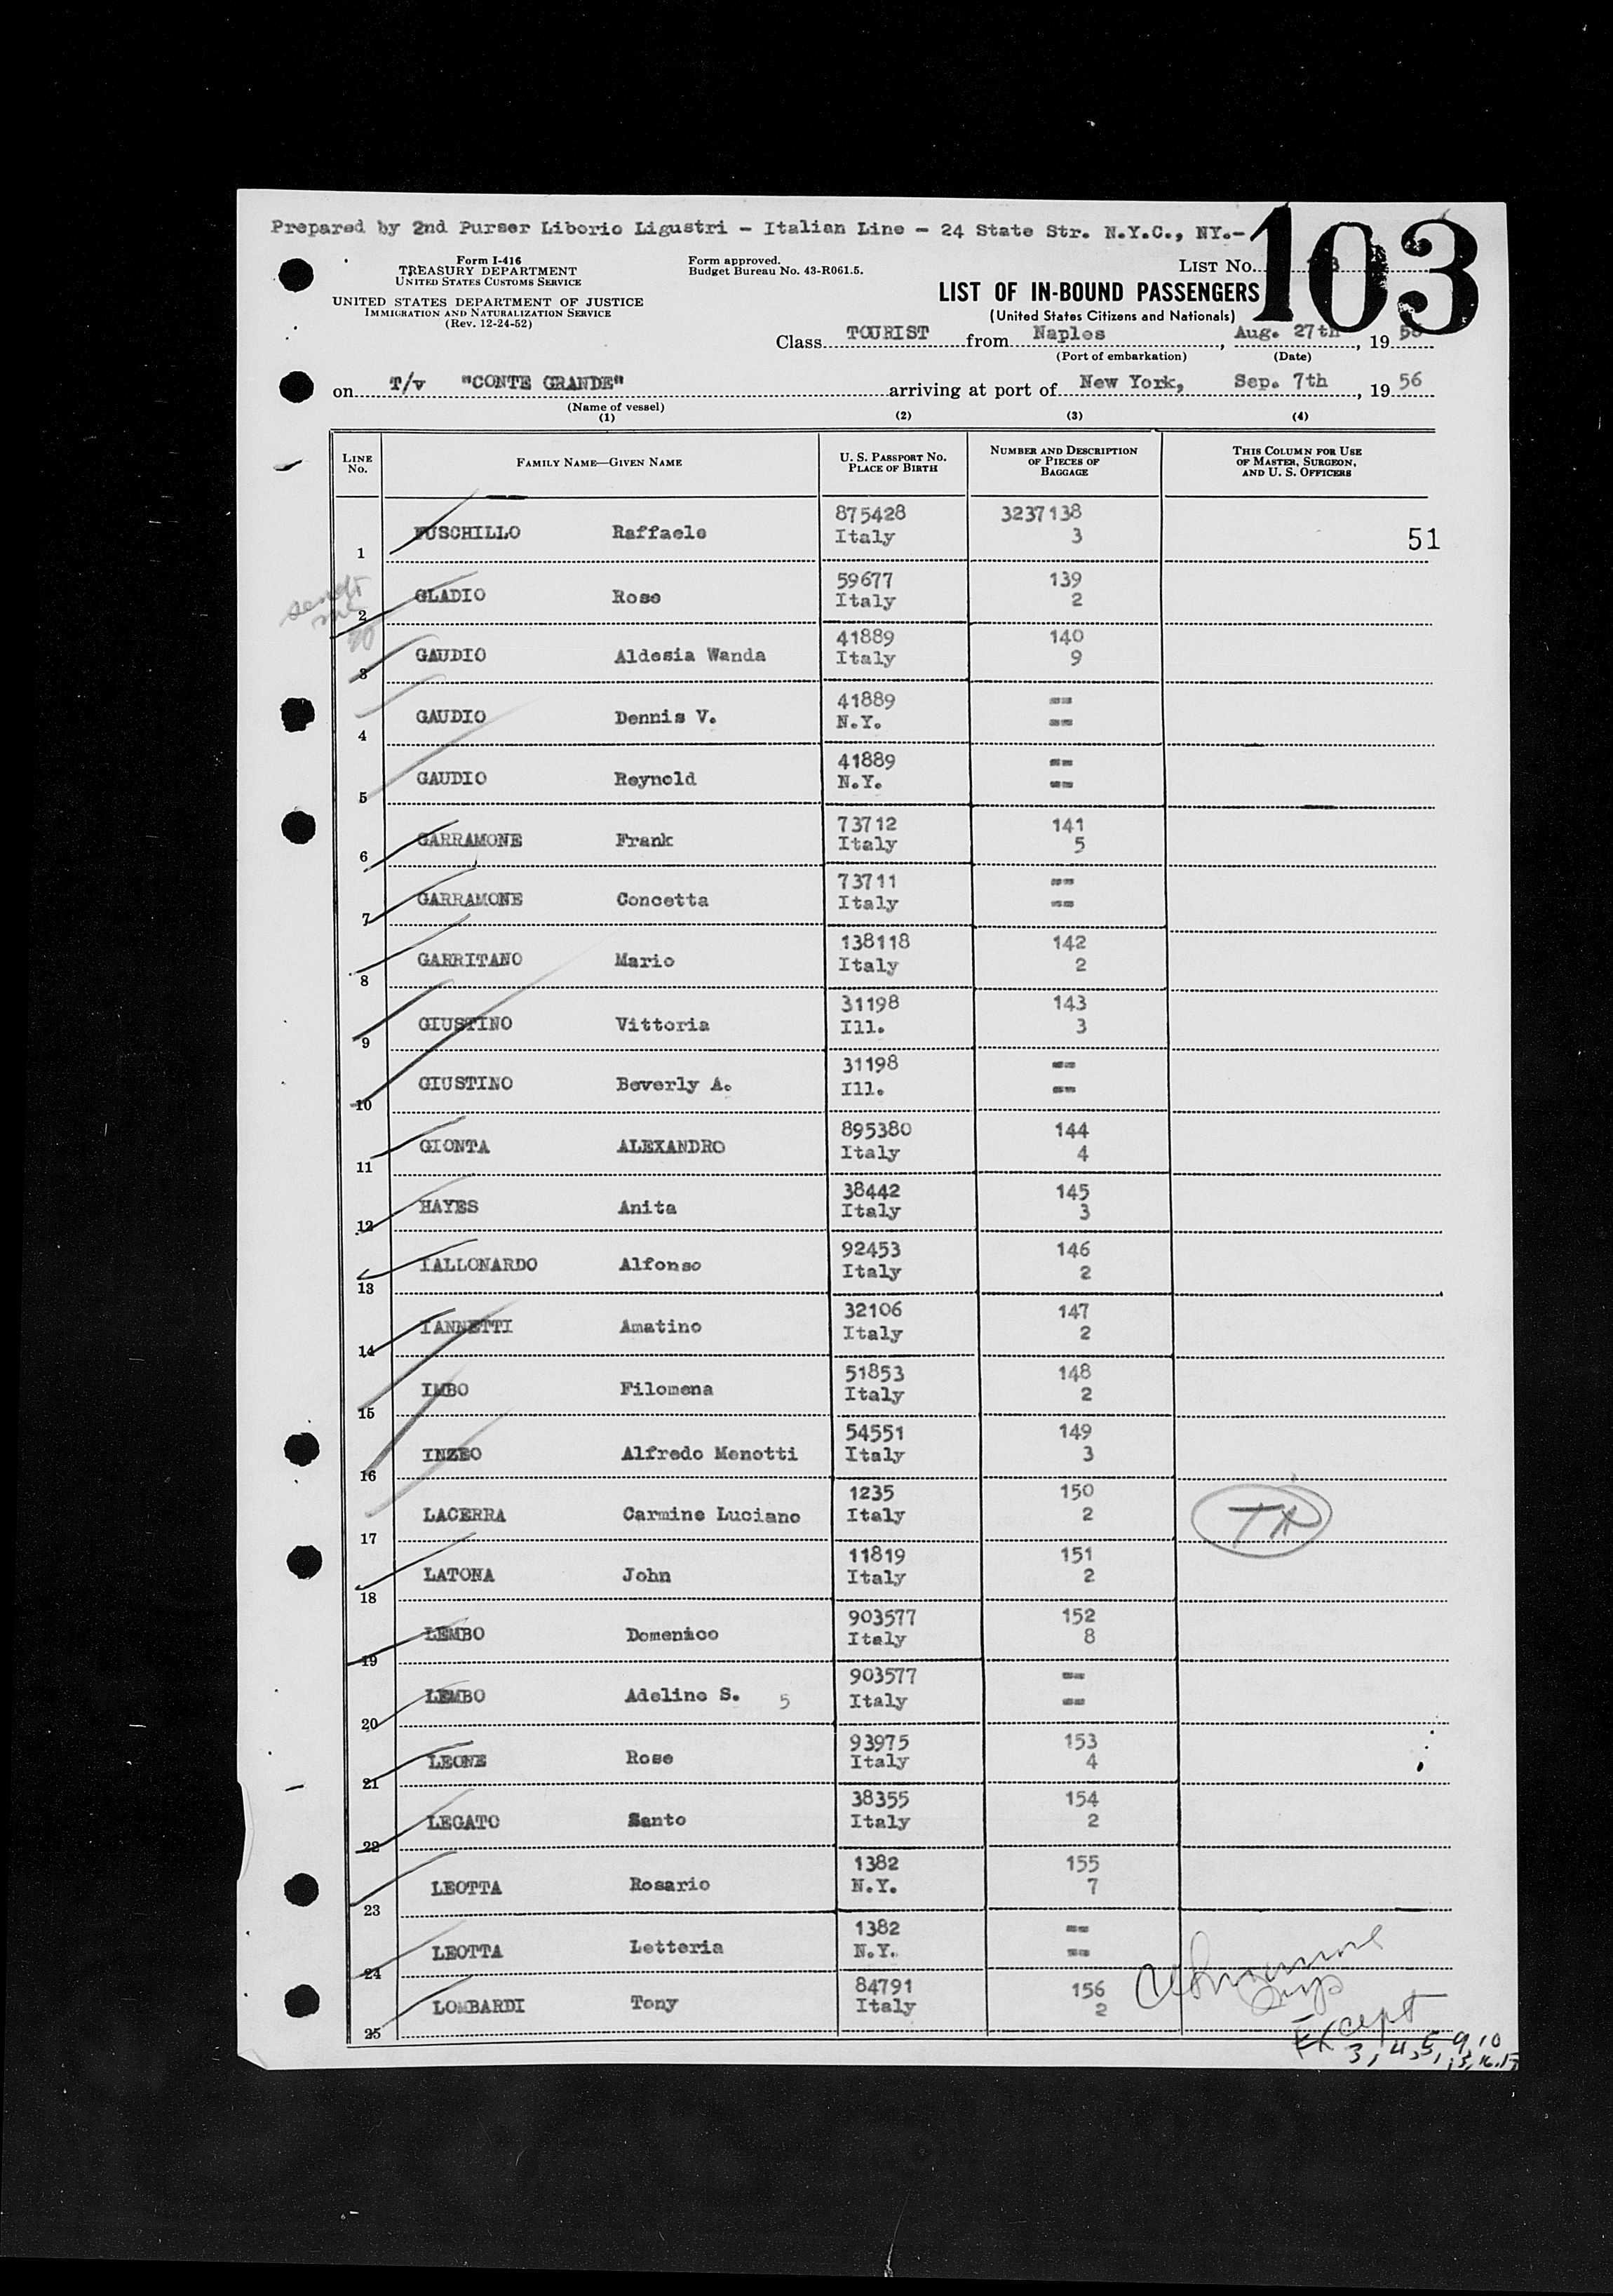 Prepared by 2nd Purser Liborio Ligustri - Italian Line - 24 State Str. N.Y.C., NY.-
103
Form I-416
TREASURY DEPARTMENT
UNITED STATES CUSTOMS SERVICE
UNITED STATES DEPARTMENT OF JUSTICE
IMMIGRATION AND NATURALIZATION SERVICE
(Rev. 12-24-52)
Form approved.
Budget Bureau No. 43-R061.5.
LIST NO.
LIST OF IN-BOUND PASSENGERS
(United States Citizens and Nationals)
Class TOURIST from Naples, Aug. 27th, 19
(Port of embarkation) (Date)
on T/v "CONTE GRANDE" arriving at port of New York, Sep. 7th, 19 56
(Name of vessel)
(1) (2) (3) (4)
LINE No. FAMILY NAME—GIVEN NAME U. S. PASSPORT NO. PLACE OF BIRTH NUMBER AND DESCRIPTION OF PIECES OF BAGGAGE THIS COLUMN FOR USE OF MASTER, SURGEON, AND U. S. OFFICERS
1 FUSCHILLO Raffaele 875428 Italy 3237138 3 51
2 GLADIO Rose 59677 Italy 139 2
3 GAUDIO Aldesia Wanda 41889 Italy 140 9
4 GAUDIO Dennis V. 41889 N.Y. -- --
5 GAUDIO Reynold 41889 N.Y. -- --
6 GARRAMONE Frank 73712 Italy 141 5
7 GARRAMONE Concetta 73711 Italy -- --
8 GARRITANO Mario 138118 Italy 142 2
9 GIUSTINO Vittoria 31198 Ill. 143 3
10 GIUSTINO Beverly A. 31198 Ill. -- --
11 GIONTA ALEXANDRO 895380 Italy 144 4
12 HAYES Anita 38442 Italy 145 3
13 IALLONARDO Alfonso 92453 Italy 146 2
14 IANNETTI Amatino 32106 Italy 147 2
15 IMBO Filomena 51853 Italy 148 2
16 INZEO Alfredo Menotti 54551 Italy 149 3
17 LACERRA Carmine Luciano 1235 Italy 150 2
18 LATONA John 11819 Italy 151 2
19 LEMBO Domenico 903577 Italy 152 8
20 LEMBO Adeline S. 5 903577 Italy -- --
21 LEONE Rose 93975 Italy 153 4
22 LEGATO Santo 38355 Italy 154 2
23 LEOTTA Rosario 1382 N.Y. 155 7
24 LEOTTA Letteria 1382 N.Y. -- --
25 LOMBARDI Tony 84791 Italy 156 2
Except
3, 4, 5, 9, 10
15, 16, 17